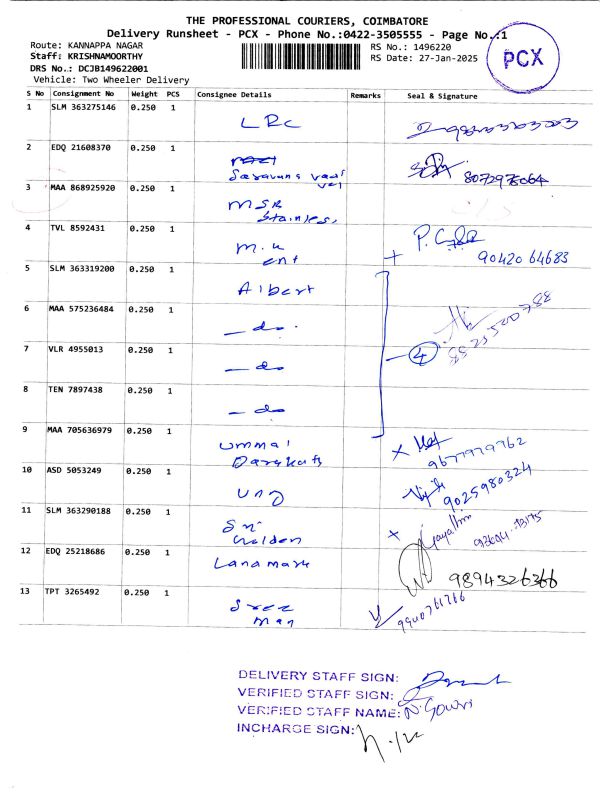 THE PROFESSIONAL COURIERS, COIMBATORE
Delivery Runsheet - PCX - Phone No.:0422-3505555 - Page No.:1
Route: KANNAPPA NAGAR
RS No.: 1496220
Staff: KRISHNAMOORTHY
RS Date: 27-Jan-2025
DRS No.: DCJB149622001
Vehicle: Two Wheeler Delivery
PCX
S No Consignment No Weight PCS Consignee Details Remarks Seal & Signature
1 SLM 363275146 0.250 1 LRC
2 EDQ 21608370 0.250 1 Saravana 8072976064
3 MAA 868925920 0.250 1 MSR
Stainles,
4 TVL 8592431 0.250 1 M.K
ent 90420 64683
5 SLM 363319200 0.250 1 Albert
6 MAA 575236484 0.250 1 - do -
7 VLR 4955013 0.250 1 - do 4
8 TEN 7897438 0.250 1 - do
9 MAA 705636979 0.250 1 Ummal
9677979762
10 ASD 5053249 0.250 1 9025980324
11 SLM 363290188 0.250 1 Sri
Golden
12 EDQ 25218686 0.250 1 Lanamark 9894326366
13 TPT 3265492 0.250 1 Sree
Man
DELIVERY STAFF SIGN:
VERIFIED STAFF SIGN:
VERIFIED STAFF NAME: N. Gowri
INCHARGE SIGN: